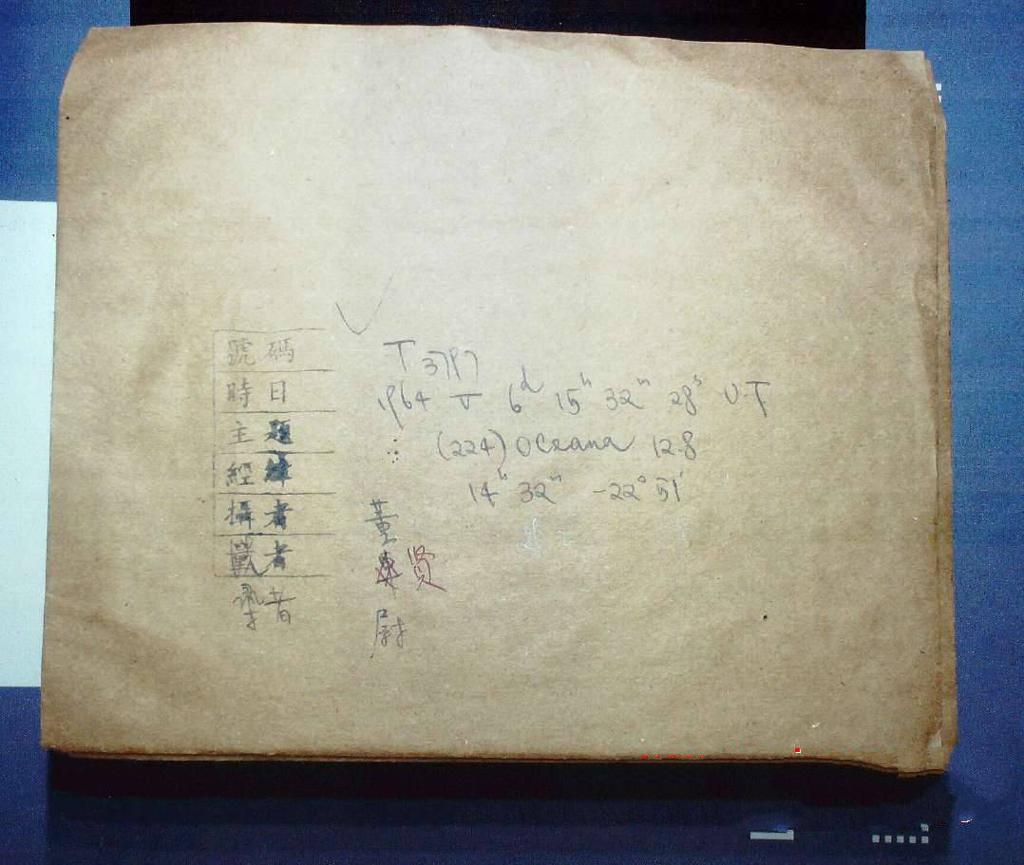 號碼 T 3797
時日 1964 V 6d 15h 32m 28s U.T
主題 (224) Oceana 12.8
經緯 14h 32m -22° 51'
攝者 董
者 贤
者 尉